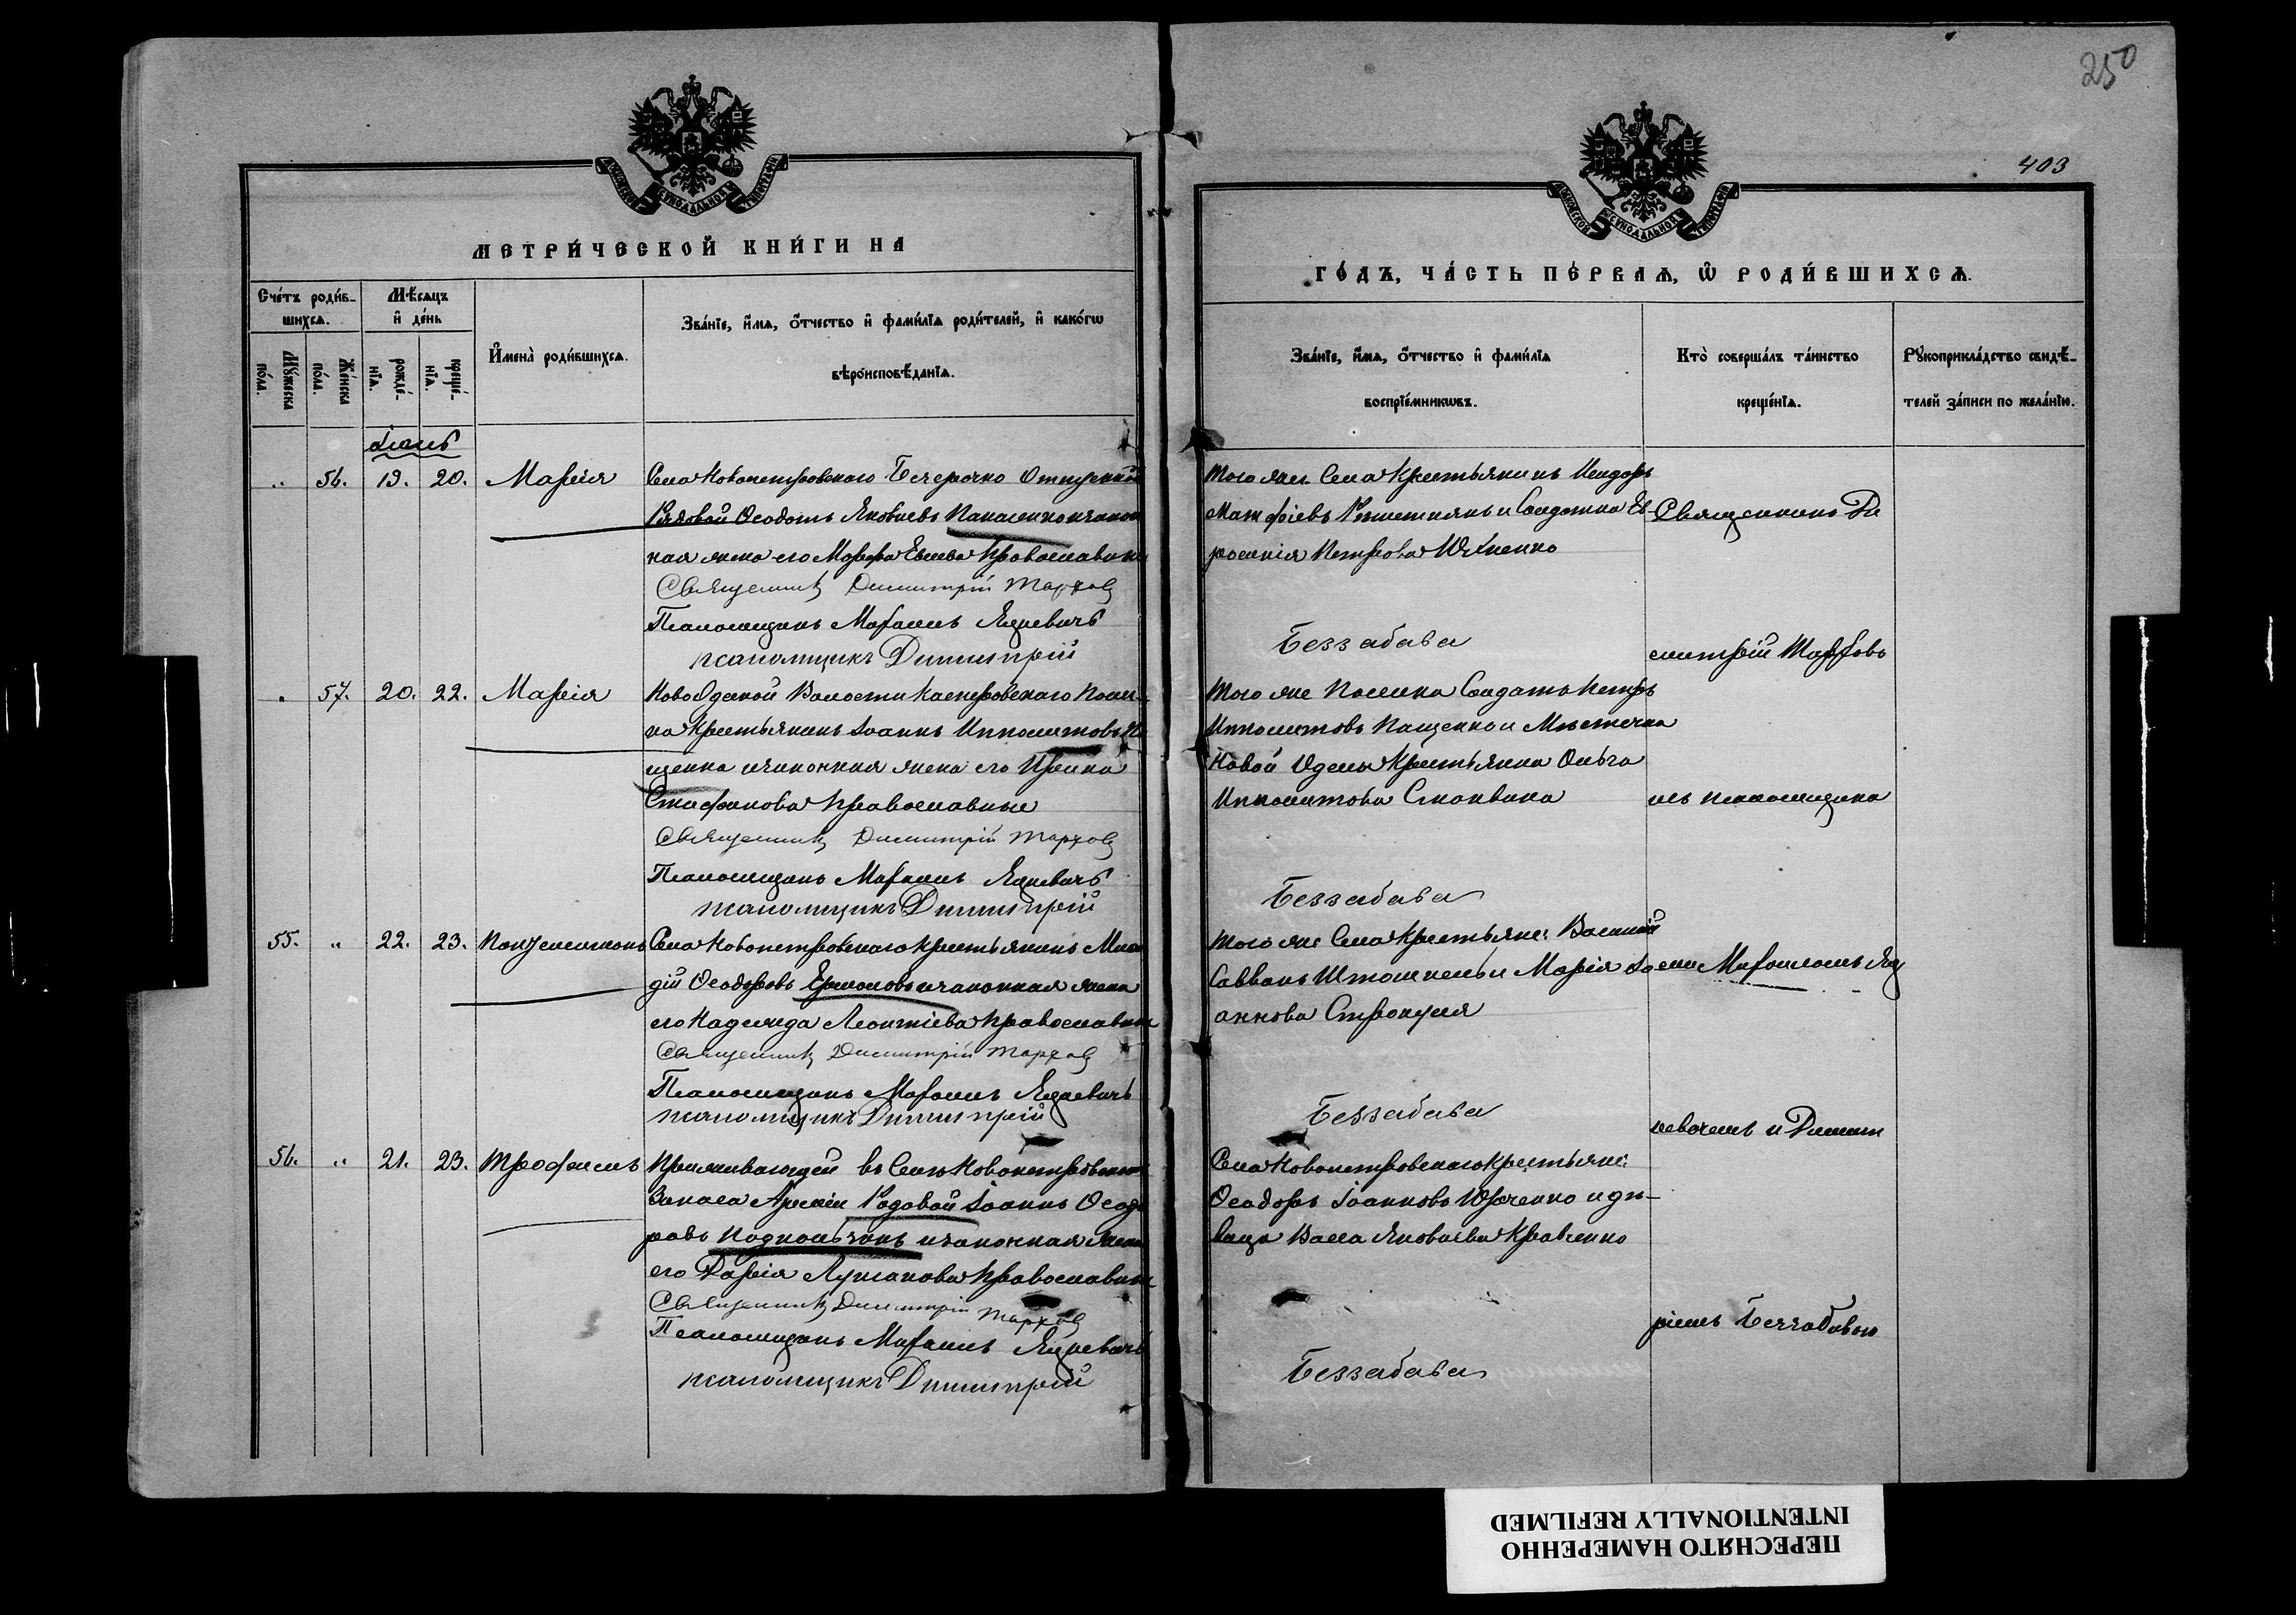 250
403
МЕТРИ́ЧЕСКОЙ КНИ́ГИ НА
ГО́ДЪ, ЧА́СТЬ ПЕ́РВАѦ, Ѿ РОДИ́ВШИХСѦ.
Сче́тъ роди́в-
шихсѧ.
Мѣ́сѧцъ
и де́нь
Мꙋ́жеска
по́ла.
Же́нска
по́ла.
рожде́-
нїѧ.
креще́-
нїѧ.
Имена̀ роди́вшихсѧ.
Зва́нїе, и́мѧ, о́тчество и фами́лїѧ роди́телей, и како́гѡ
вѣроисповѣ́данїѧ.
Зва́нїе, и́мѧ, о́тчество и фами́лїѧ
воспрїе́мникѡвъ.
Кто̀ соверша́лъ та́инство
креще́нїѧ.
Рꙋкоприкла́дство свидѣ́-
телей за́писи по жела́нїю.
Іюнь
" 56. 19. 20. Марія
Села Новопетровскаго Безсрочно Отпускной
Рядовой Ѳеодотъ Яковлевъ Панасенко и закон
ная жена его Марѳа Евсеева Православные
Священникъ Димитрій Тарховъ
Псаломщикъ Михаилъ Яцкевичъ
псаломщикъ Димитрій
Того же Села Крестьянинъ Исидоръ
Матфіевъ и Солдатка Ев
росинія Петрова Юхненко
Беззабава
Священникъ Ди
митрій Тарховъ
" 57. 20. 22. Марія
Ново Одеской Волости Касперовскаго Посел-
ка Крестьянинъ Іоаннъ Ипполитовъ Па
щенко и законная жена его Ирина
Стефанова Православные
Священникъ Димитрій Тарховъ
Псаломщикъ Михаилъ Яцкевичъ
псаломщикъ Димитрій
Того же Поселка Солдатъ Петръ
Ипполитовъ Пащенко и Мѣстечка
Новой Одессы Крестьянка Ольга
Ипполитова
Беззабава
съ псаломщика
55. " 22. 23. Пантелеимонъ
Села Новопетровскаго Крестьянинъ
дій Ѳеодоровъ Ермоловъ и законная жена
его Надежда Леонтіева Православные
Священникъ Димитрій Тарховъ
Псаломщикъ Михаилъ Яцкевичъ
псаломщикъ Димитрій
Того же Села Крестьяне: Василій
Саввовъ и Марія Іо
аннова
Беззабава
ми Михаиломъ Яц
кевичемъ и Димит
56. " 21. 23. Трофимъ
Проживающій въ Селѣ Новопетровскомъ
Запаса Арміи Рядовой Іоаннъ Ѳеодо
ровъ и законная жена
его Дарія Лукіанова Православные
Священникъ Димитрій Тарховъ
Псаломщикъ Михаилъ Яцкевичъ
псаломщикъ Димитрій
Села Новопетровскаго Крестьяне:
Ѳеодоръ Іоанновъ Юрченко и дѣ-
вица Васса Яковлева Кравченко
Беззабава
ріемъ Беззабавою
ПЕРЕСНЯТО НАМЕРЕННО
INTENTIONALLY REFILMED